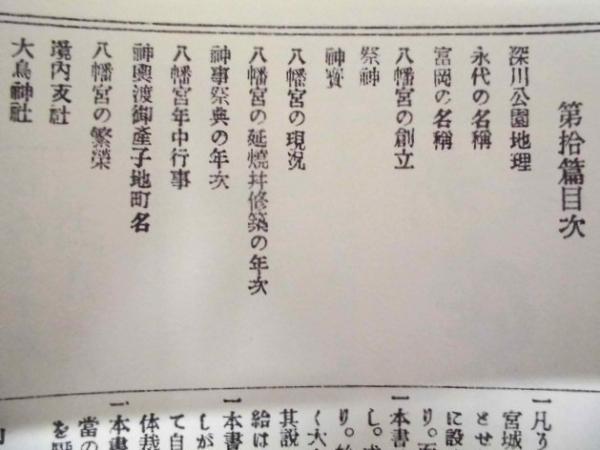 第拾篇目次
深川公園地理
永代の名稱
富岡の名稱
八幡宮の創立
祭神
神寶
八幡宮の現況
八幡宮の延燒并修築の年次
神事祭典の年次
八幡宮年中行事
神輿渡御產子地町名
八幡宮の繁榮
境內攴社
大鳥神社
一凡
宮城
とせ
に設
り。
一本書
し。
り。
く大
其說
給は
一本書
しが
て自
体裁
一本書
當の
を